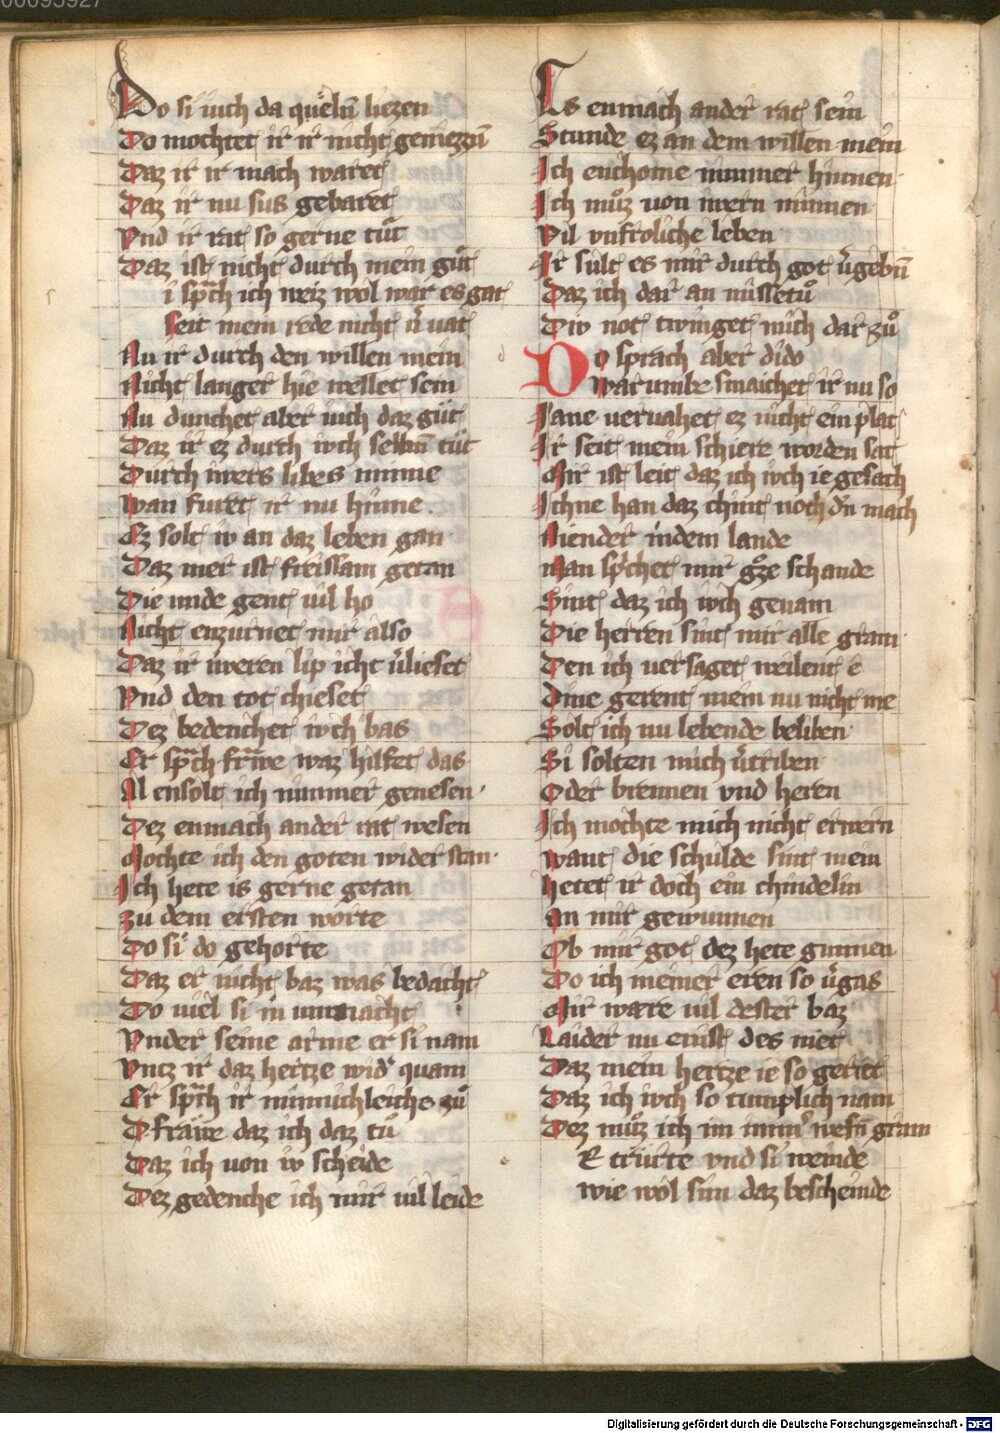 00095927
Do si iuch da quelñ liezen
Do mochtet ir ir nicht geniezzñ
Daz ir ir mach waret
Daz ir nu sus gebaret
Vnd ir rat so gerne tůt
Daz ist nicht durch mein gůt
i sp̃ch ich weiz wol war es gat
Seit mein rede nicht v̾uat
Nu ir durch den willen mein
Nicht langer hie wellet sein
Nu dunchet aber iuch daz gůt
Daz ir ez durch iwch selbñ tůt
Durch iwers libes minne
Wan furet ir nu hinne
Ez solt iv an daz leben gan
Daz mer ist freissam getan
Die unde gent uil ho
Nicht enzurnet mir also
Daz ir iweren lip icht v̾lieset
Vnd den tot chieset
Dez bedenchet iwch bas
Er sp̃ch frãwe waz hilfet das
Al ensolt ich nimmer genesen
Dez enmach ander rat wesen
Mochte ich den goten wider stan
Ich hete is gerne getan
Zu dem ersten worte
Do si do gehorte
Daz er nicht baz was bedacht
Do uiel si in unmacht
Vnder seine arme er si nam
Vntz ir daz hertze wid̾ quam
Er sp̃ch ir minnichleiche zů
O frawe daz ich daz tů
Daz ich von iv scheide
Dez gedenche ich mir uil leide
Es enmach ander rat sein
Stunde ez an dem willen mein
Ich enchome nimmer hinnen
Ich můz von iwern minnen
Vil vnfroliche leben
Ir sult es mir durch got v̾gebñ
Daz ich dar an missetů
Div not twinget mich dar zů
Do sprach aber dido
Warumbe smaichet ir nu so
Jane veruahet ez nicht ein plat
Ir seit mein schiere worden sat
Mir ist leit daz ich iwch ie gesach
Ichne han daz chint noch dñ mach
Niender indem lande
Man sp̾chet mir gͦze schande
Sint daz ich iwch genam
Die herren sint mir alle gram
Den ich versaget weilent e
Dine gerent mein nu nicht me
Solt ich nu lebende beliben
Si solten mich v̾triben
Oder brennen vnd heren
Ich mochte mich nicht erwern
Want die schulde sint mein
Hetet ir doch ein chindelin
An mir gewunnen
Ob mir got dez hete gunnen
Do ich meiner eren so v̾gas
Mir ware uil dester baz
Laider nu enist des niet
Daz mein hertze ie so geriet
Daz ich iwch so tumplich nam
Dez můz ich im imm̾ wesñ gram
E trurte vnd si weinde
Wie wol sim daz bescheinde
Digitalisierung gefördert durch die Deutsche Forschungsgemeinschaft - DFG